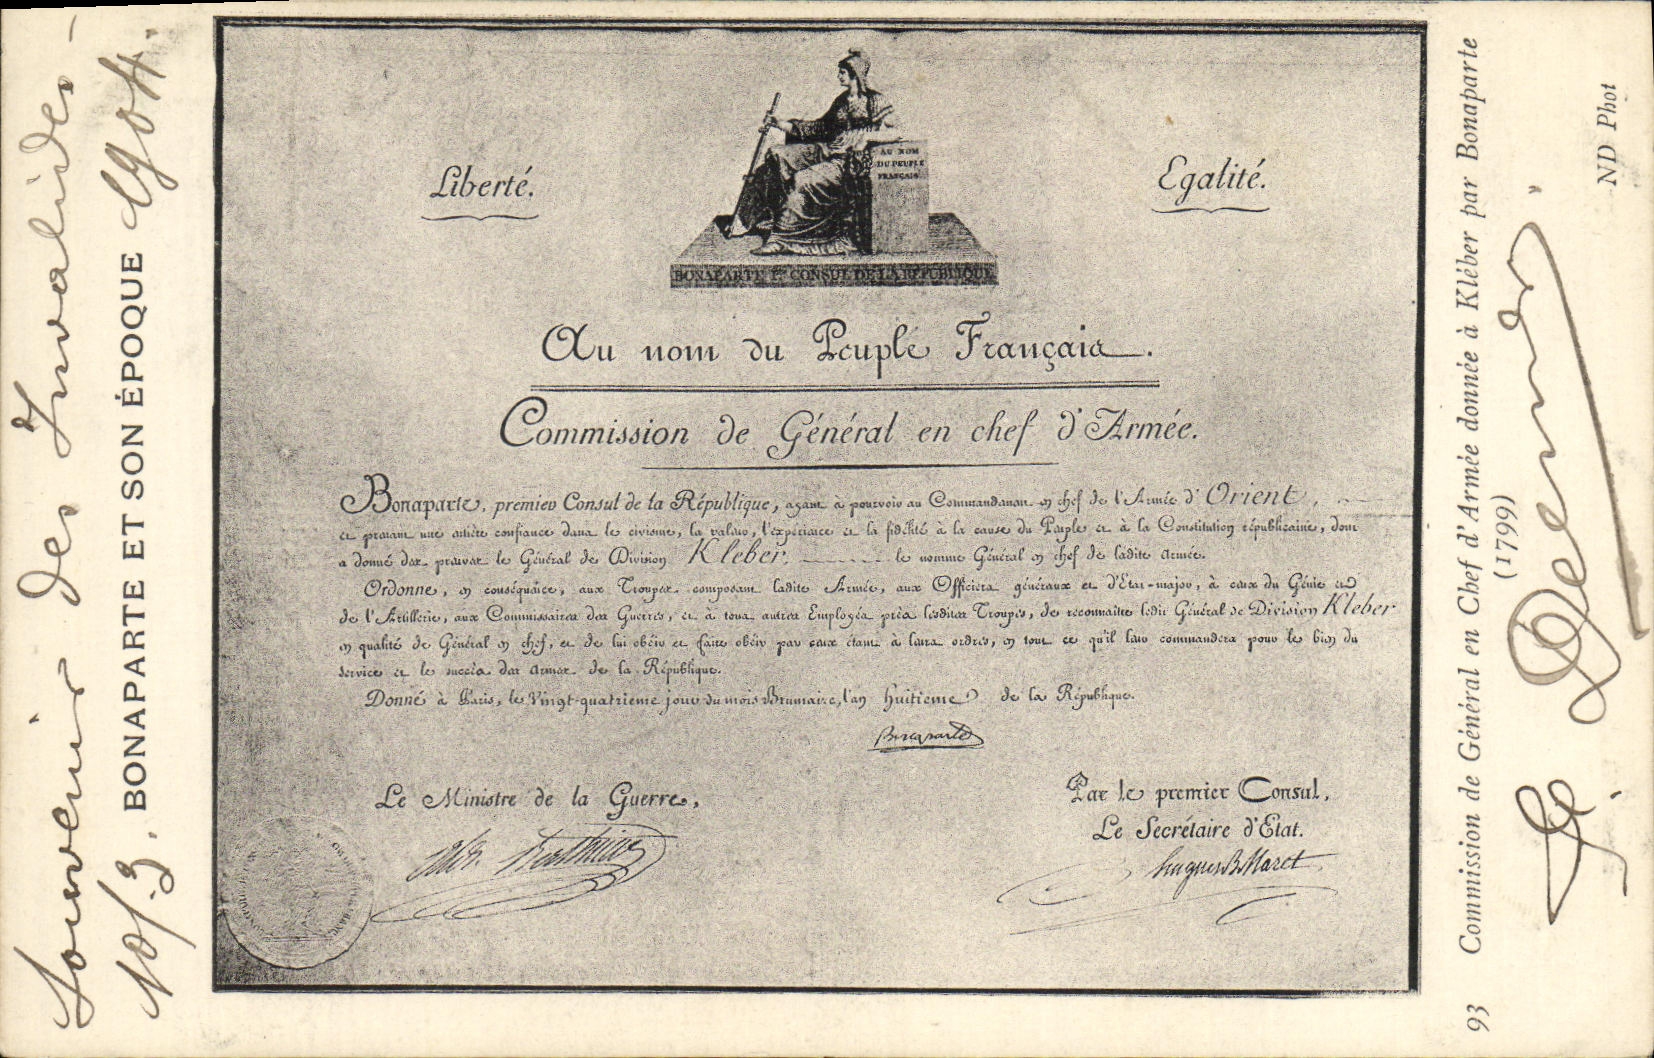 Souvenir des Invalides
BONAPARTE ET SON ÉPOQUE
Liberté.
Egalité.
AU NOM
DU PEUPLE
FRANÇAIS
BONAPARTE 1er CONSUL DE LA RÉPUBLIQUE
Au nom du Peuple Français.
Commission de Général en chef d'Armée.
Bonaparte, premier Consul de la République, ayant à pourvoir au Commandement en chef de l'Armée d'Orient,
et prenant une entière confiance dans le civisme, la valeur, l'expérience et la fidélité à la cause du Peuple et à la Constitution républicaine, dont
a donné des preuves le Général de Division Kleber. le nomme Général en chef de ladite armée.
Ordonne, en conséquence, aux Troupes composant ladite Armée, aux Officiers généraux et d'Etat-major, à ceux du Génie et
de l'Artillerie, aux Commissaires des Guerres, et à tous autres Employés près lesdites Troupes, de reconnaître ledit Général de Division Kleber
en qualité de Général en chef, et de lui obéir et faire obéir par ceux étant à leurs ordres, en tout ce qu'il leur commandera pour le bien du
service et le succès des armes de la République.
Donné à Paris, le Vingt-quatrieme jour du mois Brumaire, l'an Huitieme de la République.
Bonaparte
Le Ministre de la Guerre,
Alex. Berthier
Par le premier Consul,
Le Secrétaire d'Etat.
Hugues B Maret
93 Commission de Général en Chef d'Armée donnée à Kléber par Bonaparte
(1799)
ND Phot